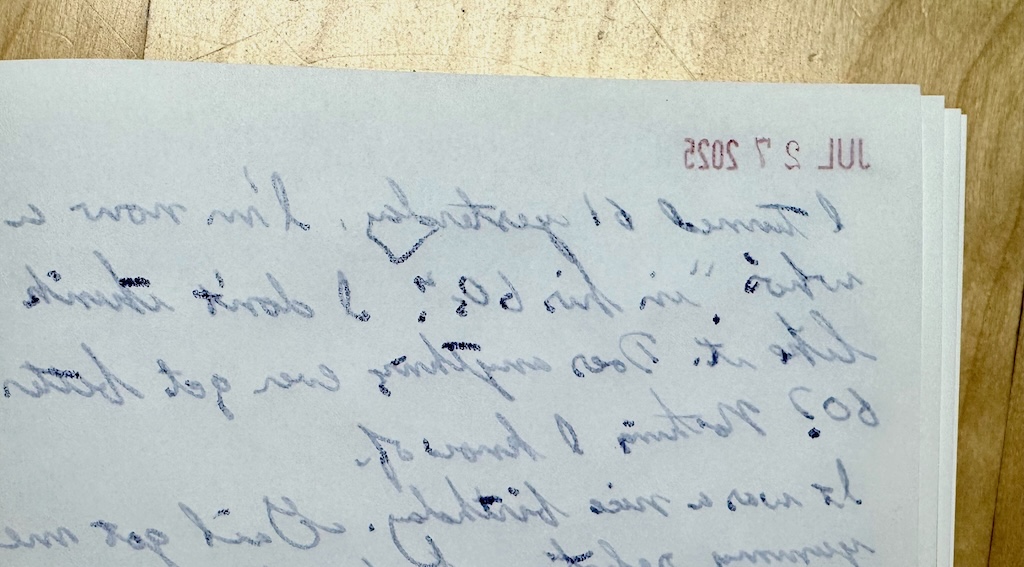 JUL 27 2025
I turned 61 yesterday. I'm now a
who's "in his 60s". I don't think
like it. Does anything ever get better
60? Nothing I know of.
It was a nice birthday. Gail got me
yummy